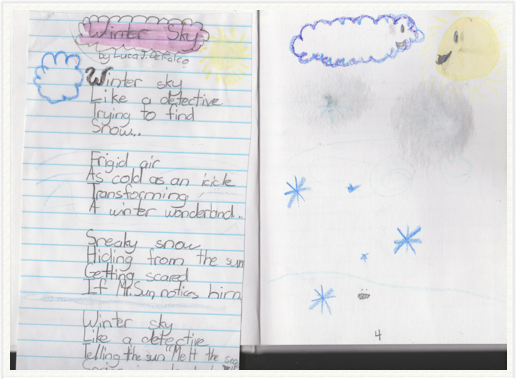 Winter Sky
by Luca J. DeFalco
Winter sky
Like a detective
Trying to find
Snow..
Frigid air
As cold as an icicle
Transforming
A winter wonderland..
Sneaky snow
Hiding from the sun
Getting scared
If Mr. Sun notices him
Winter sky
Like a detective
Telling the sun "Melt the
4